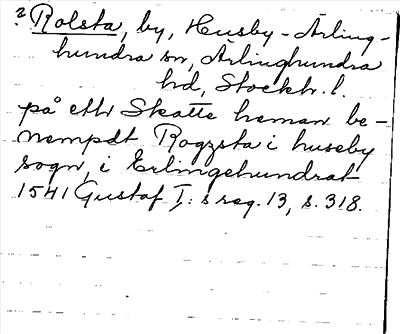 ? Rolsta, by, Husby-Ärling-
hundra sn, Ärlinghundra
hd, Stockh. l.
på ett Skatte heman be-
nempdt Rogzsta i huseby
sogn, i Erlingehundrat
1541 Gustaf I: s reg. 13, s. 318.